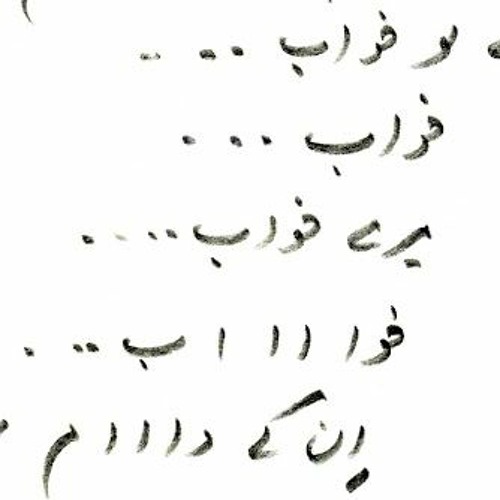 خواب ...
خواب ...
برے خواب ....
خوا ا ا ا ب ...
اِن کے دا ا ا م